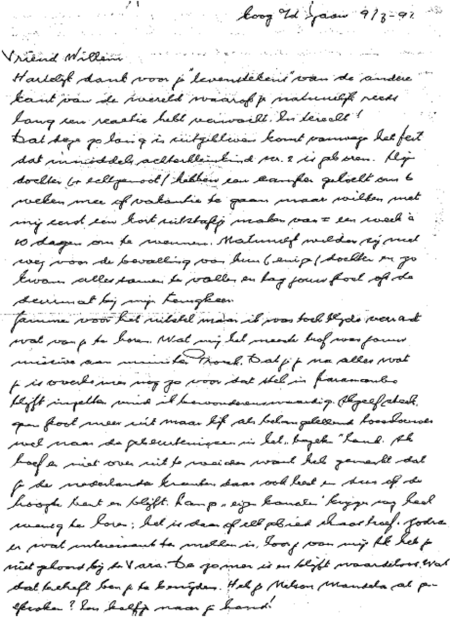 Koog a/d Zaan 9/3-92
Vriend Willem
Hartelijk dank voor je "levensteken" van de andere
kant van de wereld waarop je natuurlijk reeds
lang een reactie hebt verwacht. En terecht!
Dat deze zo lang is uitgebleven komt vanwege het feit
dat inmiddels achterkleinkind nr. 2 is geboren. Mijn
dochter (+ echtgenoot) hebben een camper gekocht om 6
weken mee op vakantie te gaan maar wilden met
mij eerst een kort uitstapje maken van = een week à
10 dagen om te wennen. Natuurlijk wilden zij niet
weg voor de bevalling van hun (enige) dochter en zo
kwam alles samen te vallen en lag jouw post op de
deurmat bij mijn terugkeer.
Jammer voor het uitstel maar ik was toch blijde verrast
wat van je te horen. Wat mij het meeste trof was jouw
missive aan minister Pronk. Dat jij na alles wat
je is overkomen nog zo voor dat stel in Paramaribo
blijft inzetten vind ik bewonderenswaardig. Ikzelf steek
geen poot meer uit maar kijk als belangstellend toeschouwer
wel naar de gebeurtenissen in het "bezette" land. Ik
hoef er niet over uit te weiden want heb gemerkt dat
je de nederlandse kranten daar ook leest en dus op de
hoogte bent en blijft. Langs "eigen kanalen" krijg ik nog heel
weinig te horen; het is daar of
er wat interessant te melden is, hoor je van mij. Ik heb je
niet gehoord bij de Vara. De zomer is en blijft waardeloos. Wat
dat betreft ben je te benijden. Heb je Nelson Mandela al ge-
sproken? Een kalfje naar je hand!